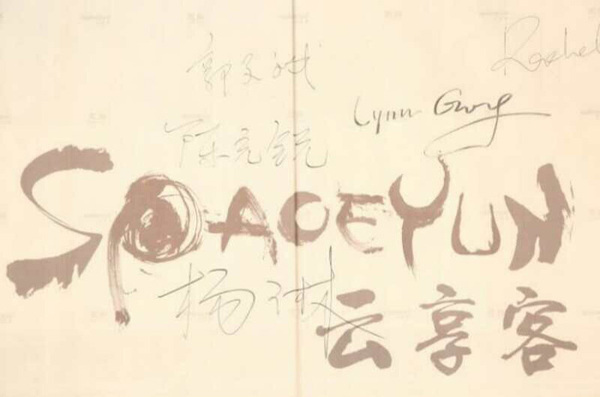 Rachel
郭文斌
Lynn Gong
陈克锐
SPACEYUN
杨斌
云享客